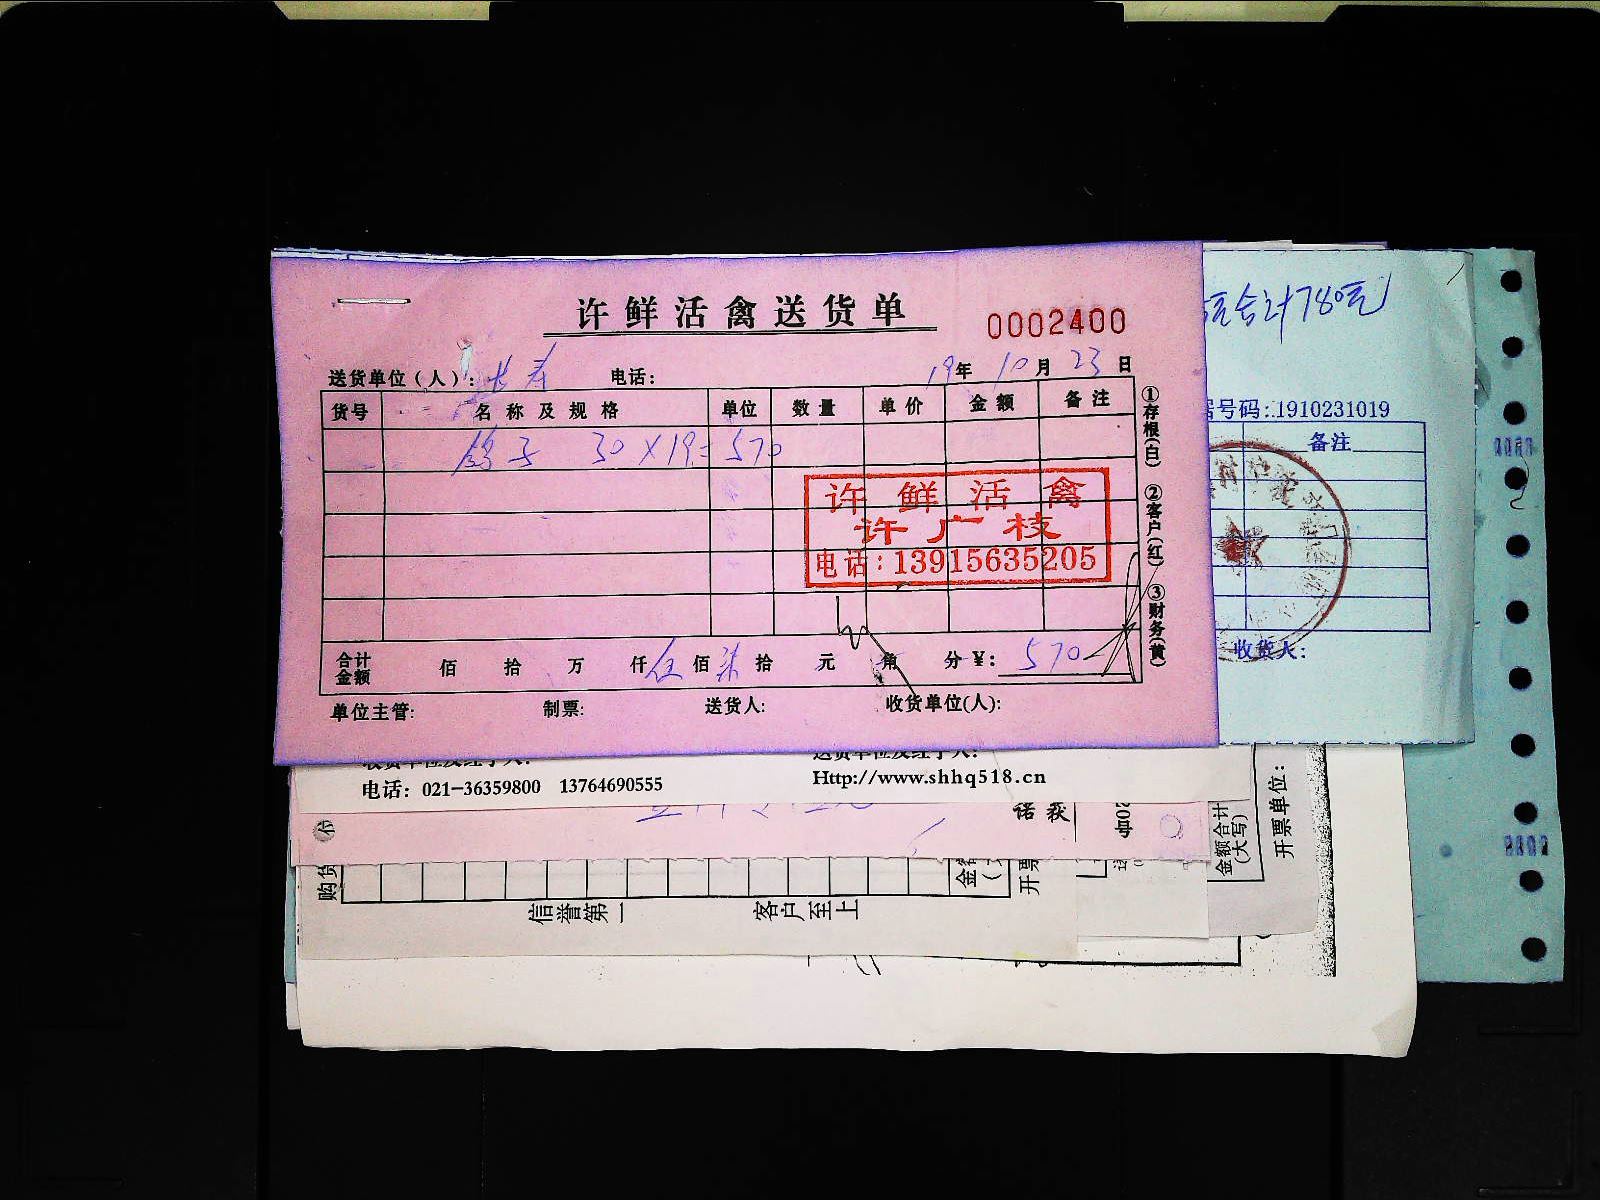 许鲜活禽送货单
0002400
送货单位（人）：长寿 电话： 19年 10月 23日
货号 名称及规格 单位 数量 单价 金额 备注
鸽子 30×19=570
许鲜活禽
许广枝
电话：13915635205
合计金额 佰 拾 万 仟 伍佰 柒拾 元 角 分 ¥： 570
单位主管： 制票： 送货人： 收货单位(人)：
①存根(白) ②客户(红) ③财务(黄)
合计780元
号码：1910231019
备注
收货人：
电话：021-36359800 13764690555
Http://www.shhq518.cn
购货
信誉第一 客户至上
开票
金额合计
(大写)
开票单位：